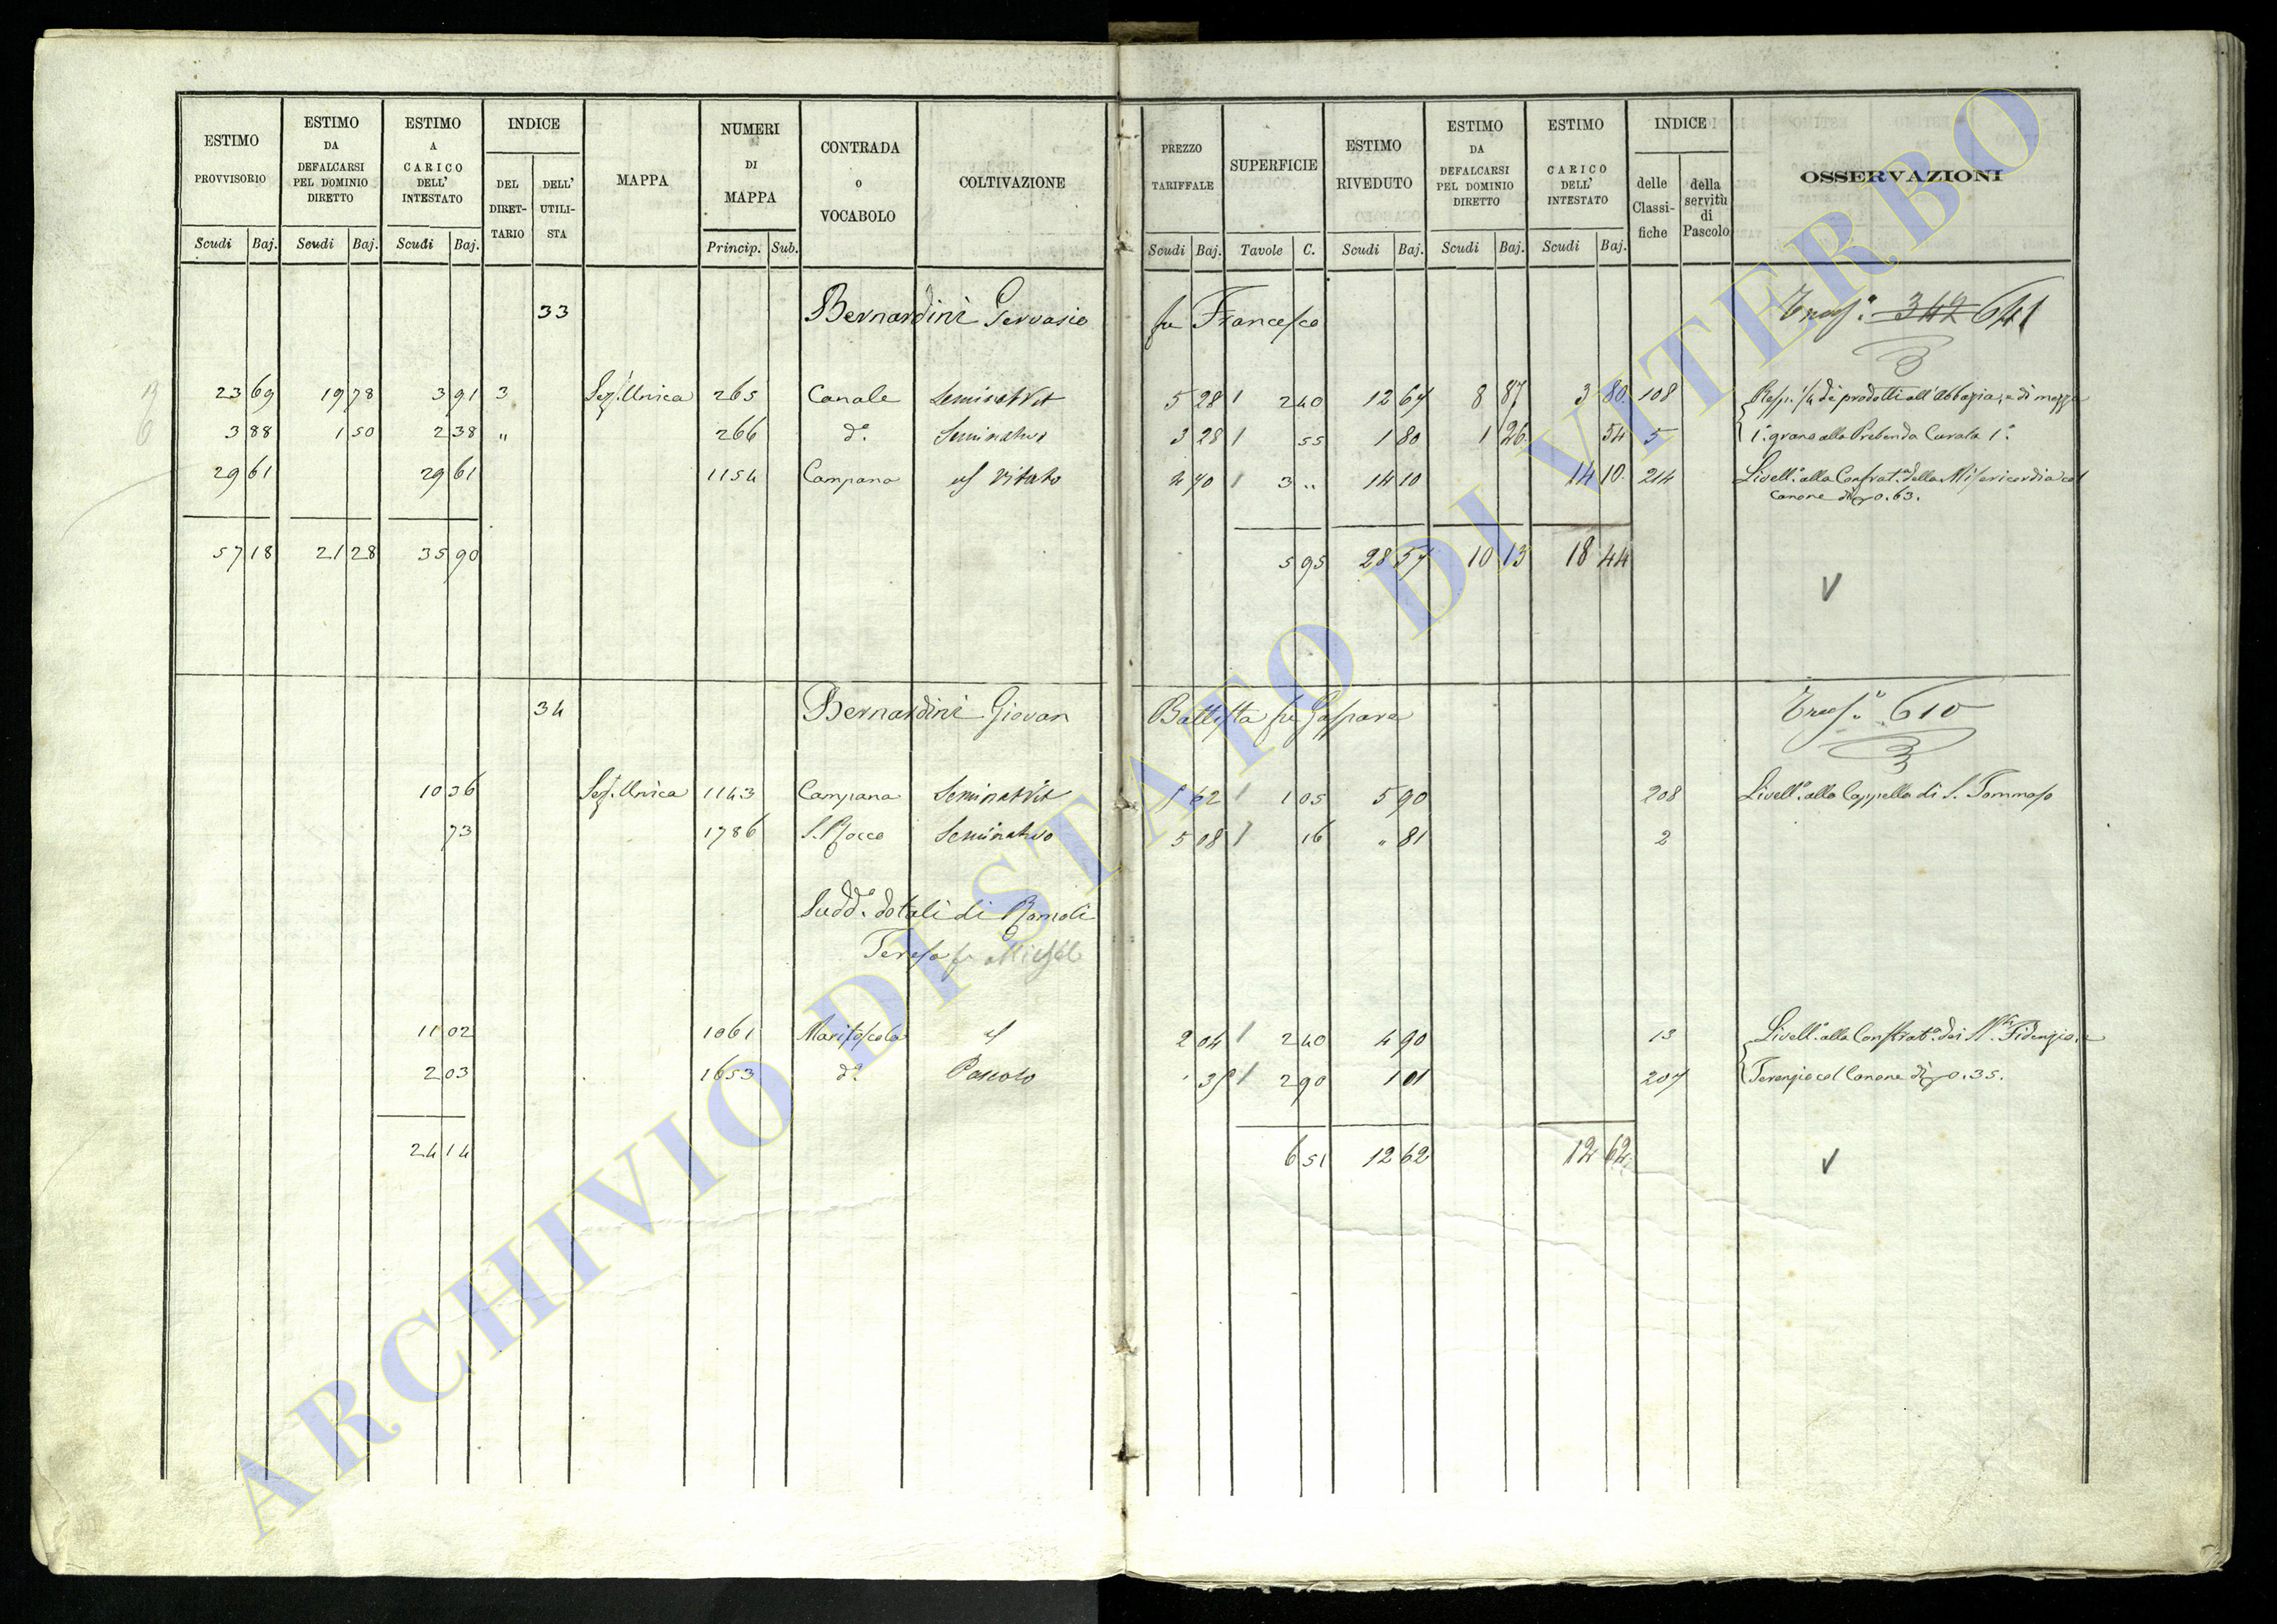 ESTIMO PROVVISORIO
Scudi Baj.
ESTIMO DA DEFALCARSI PEL DOMINIO DIRETTO
Scudi Baj.
ESTIMO A CARICO DELL' INTESTATO
Scudi Baj.
INDICE
DEL DIRET- TARIO
DELL' UTILI- STA
MAPPA
NUMERI DI MAPPA
Princip. Sub.
CONTRADA o VOCABOLO
COLTIVAZIONE
PREZZO TARIFFALE
Scudi Baj.
SUPERFICIE
Tavole C.
ESTIMO RIVEDUTO
Scudi Baj.
ESTIMO DA DEFALCARSI PEL DOMINIO DIRETTO
Scudi Baj.
ESTIMO CARICO DELL' INTESTATO
Scudi Baj.
INDICE
delle Classi- fiche
della servitù di Pascolo
OSSERVAZIONI
33 Bernardini Gervasio fu Francesco 342 641
23 69 19 78 3 91 3 Sez. Unica 265 Canale Seminat Vit 5 28 2 40 12 67 8 87 3 80 108 Resp. 1/4 di prodotti all'Abbazia, e di mezza
3 88 1 50 2 38 " 266 do. Seminativo 3 28 55 1 80 1 26 54 5 1a. grano alla Prebenda Curata 1a.
29 61 29 61 1154 Campana Vitato 4 70 3 " 14 10 14 10 214 Livell.o alla Confrat.a della Misericordia col
Canone di 0.63.
57 18 21 28 35 90 5 95 28 57 10 13 18 44
V
34 Bernardini Giovan Battista fu Gaspare 610
10 36 Sez. Unica 1143 Campana Seminat Vit 5 62 1 05 5 90 208 Livell.o alla Cappella di S. Tommaso
73 1786 S. Rocco Seminativo 5 08 16 " 81 2
Sudd.o dotali di Romoli
Teresa fu Michele
11 02 1061 2 04 2 40 4 90 13 Livell.o alla Confrat.a dei Fidenzio, e
2 03 1653 do. Pascolo 2 90 1 01 207 Terenzio col Canone di 0.35.
24 14 6 51 12 62 12 62
V
ARCHIVIO DI STATO DI VITERBO